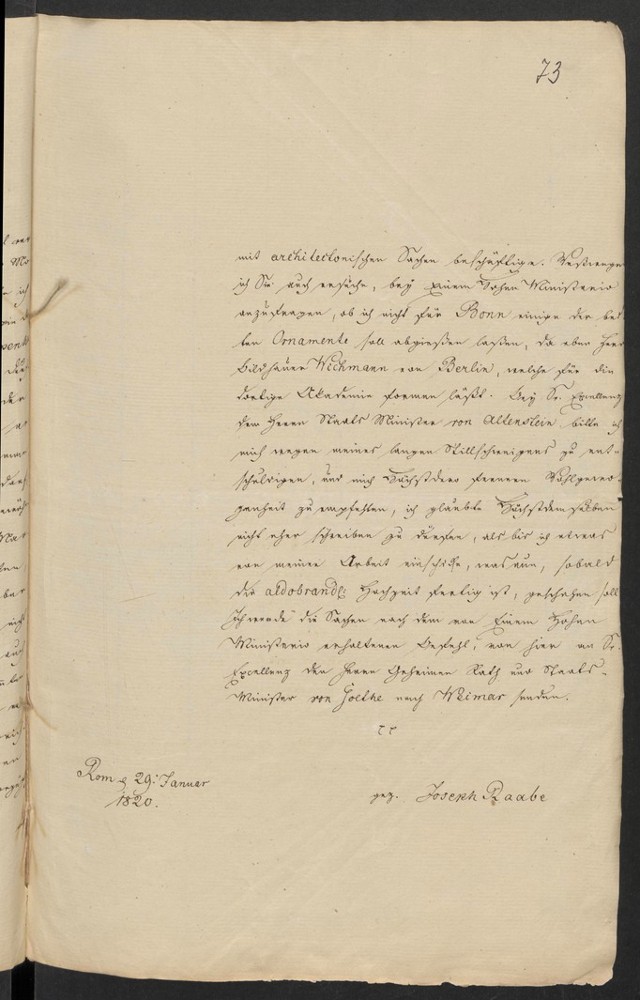 73
mit architectonischen Sachen beschäftige. Deßwegen
ich Sie auch ersuche, bey Einem Hohen Ministerio
anzufragen, ob ich nicht für Bonn einige der bes-
ten Ornamente soll abgießen laßen, da eben Herr
Bildhauer Wichmann von Berlin, welche für die
dortige Akademie formen läßt. Bey Sr. Excellenz
dem Herrn Staats Minister von Altenstein bitte ich
mich wegen meines langen Stillschweigens zu ent-
schuldigen, und mich Höchstdero fernern Wohlgewo-
genheit zu empfehlen, ich glaubte Höchstdemselben
nicht eher schreiben zu dürfen, als bis ich etwas
von meiner Arbeit einschicke, was nun, sobald
die aldobrand: Hochzeit fertig ist, geschehen soll
Ich werde die Sachen nach dem von Einem Hohen
Ministerio erhaltenen Befehl, von hier an Sr.
Excellenz den Herrn Geheimen Rath und Staats-
Minister von Goethe nach Weimar senden.
Rom d 29: Januar
1820.
gez. Joseph Raabe